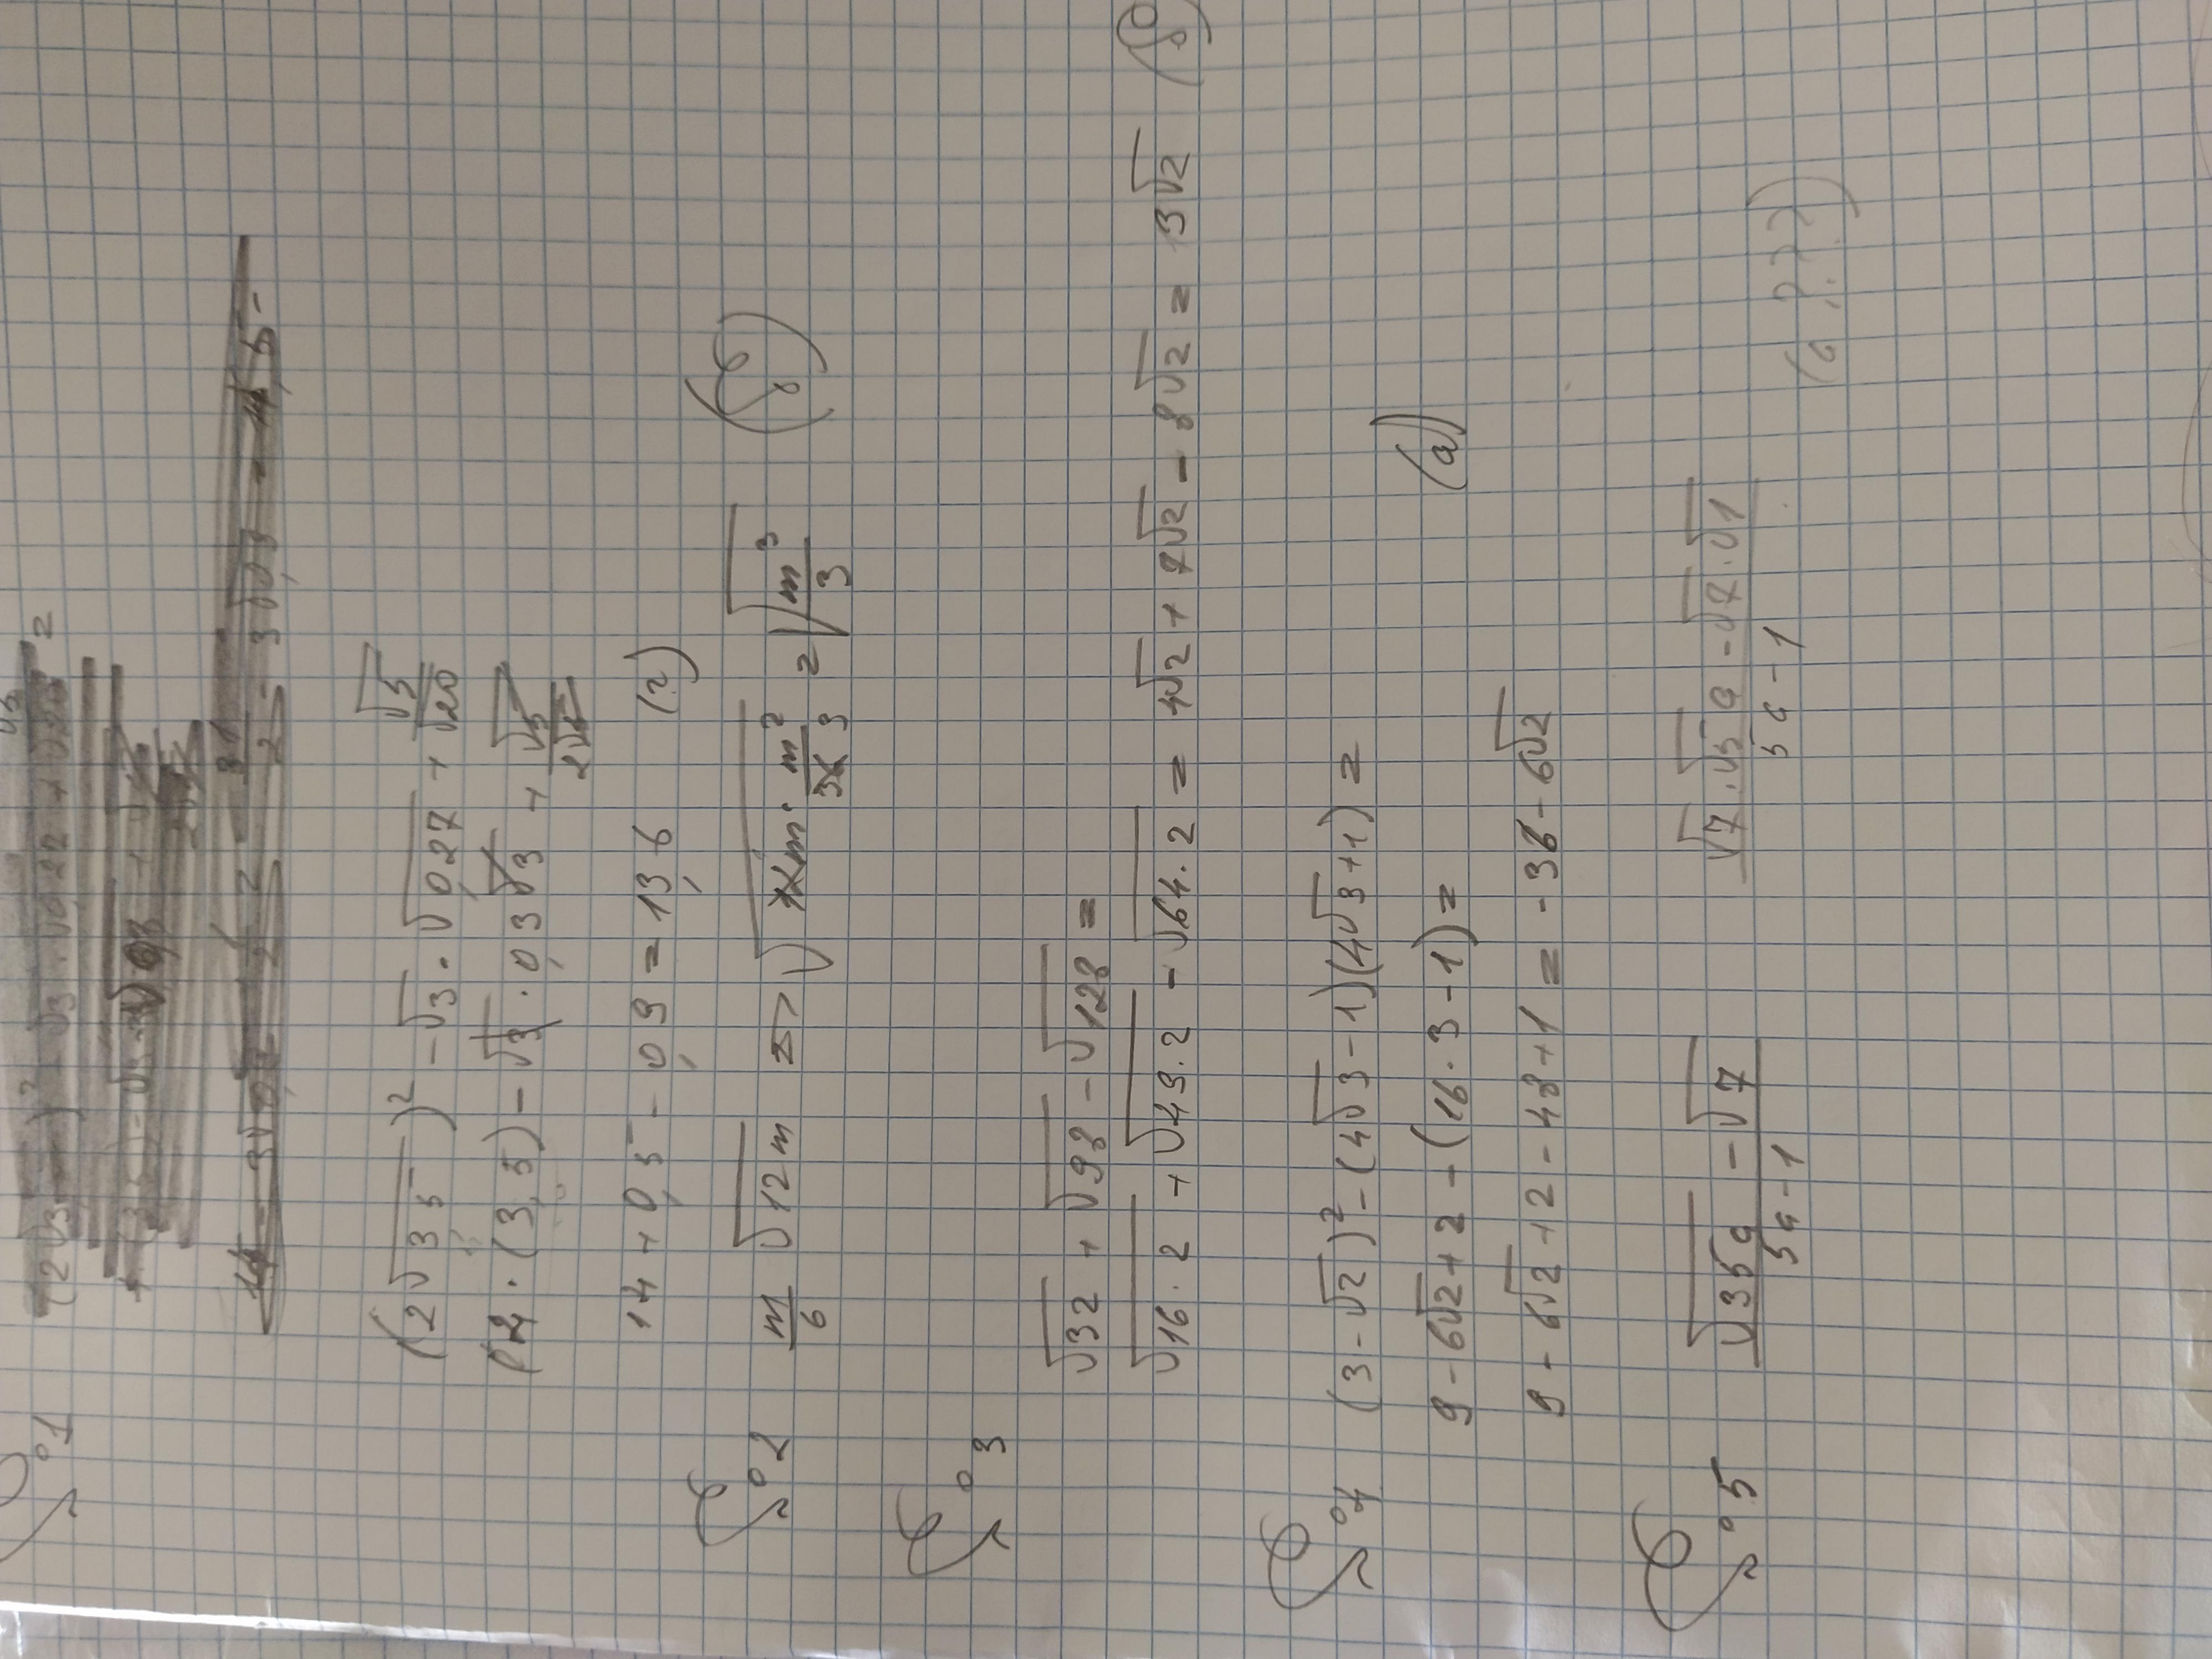 №1
(2√3,5)² - √3 · √0,27 + √5/√20
4 · (3,5) - √3 · 0,3√3 + √5/2√5
14 + 0,5 - 0,9 = 13,6 (г)
№2 m/6 √12m => √12m · m²/36 3 = √m³/3 (в)
№3
√32 + √98 - √128 =
√16·2 + √49·2 - √64·2 = 4√2 + 7√2 - 8√2 = 13√2
№4 (3-√2)² - (4√3-1)(4√3+1) =
9 - 6√2 + 2 - (16·3-1) = (а)
9 - 6√2 + 2 - 48 + 1 = -36 - 6√2
№5 √35a - √7 / 5a - 1 √7·√5a - √7·√1 / 5a - 1